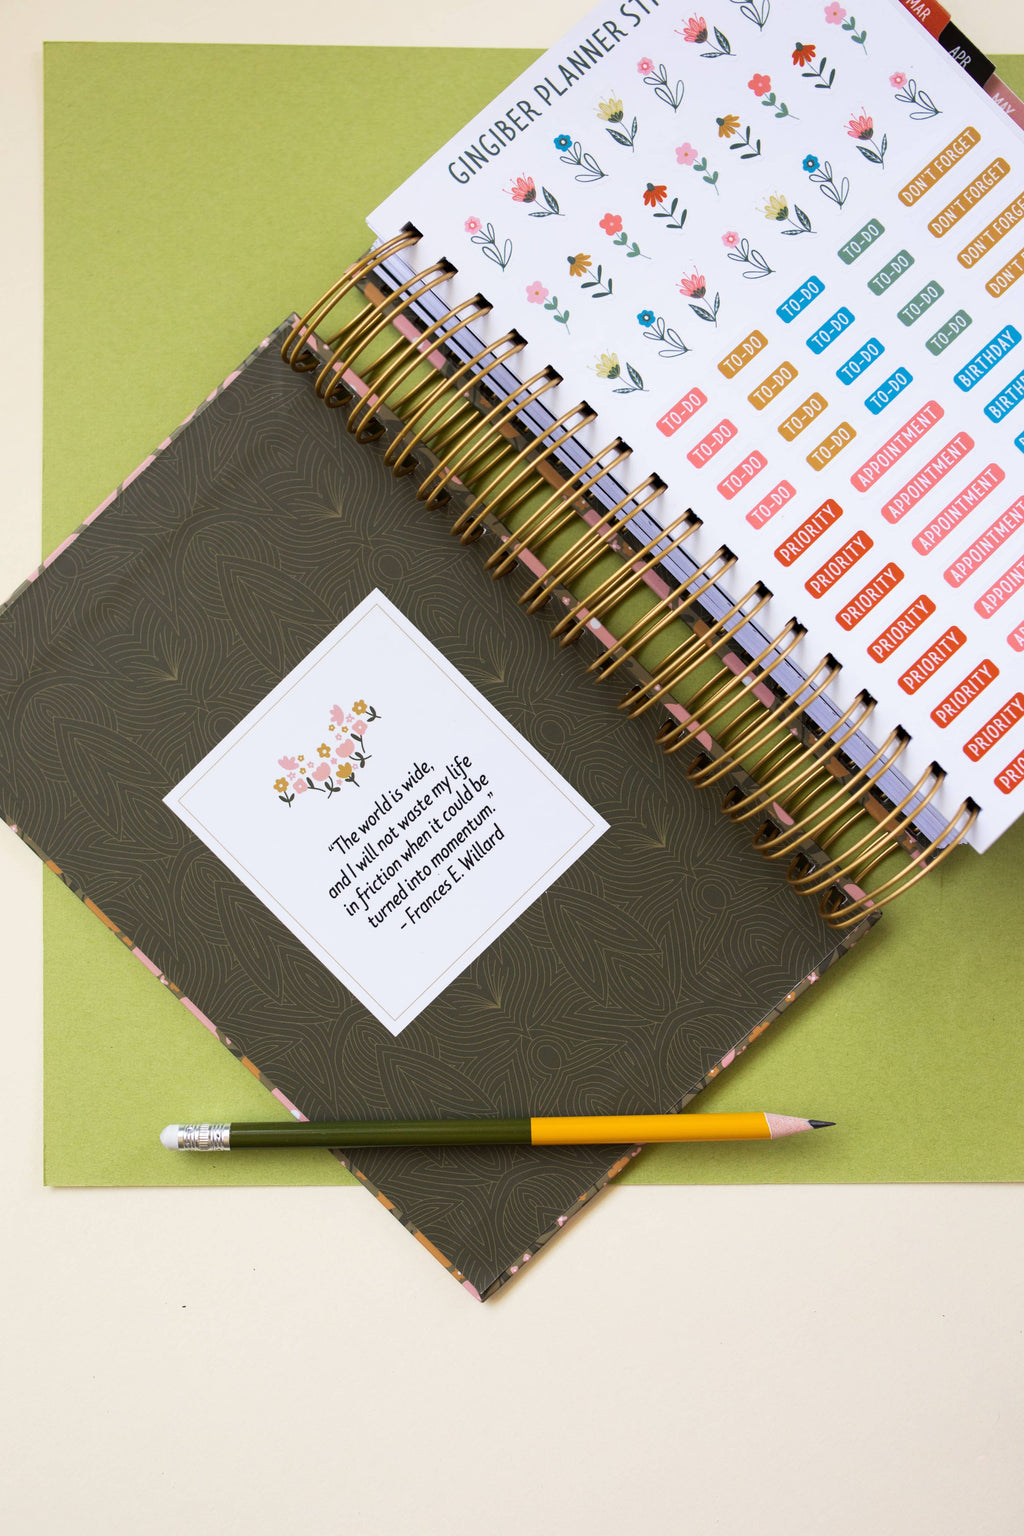 MAR
APR
MAY
GINGIBER PLANNER ST
TO-DO TO-DO TO-DO TO-DO DON'T FORGET
TO-DO TO-DO TO-DO TO-DO DON'T FORGET
TO-DO TO-DO TO-DO TO-DO DON'T FORGET
TO-DO TO-DO TO-DO TO-DO DON'T
PRIORITY APPOINTMENT BIRTHDAY
PRIORITY APPOINTMENT BIRTH
PRIORITY APPOINTMENT
PRIORITY APPOINTMENT
PRIORITY APPOIN
PRIORITY
PRIORITY
“The world is wide,
and I will not waste my life
in friction when it could be
turned into momentum.”
– Frances E. Willard